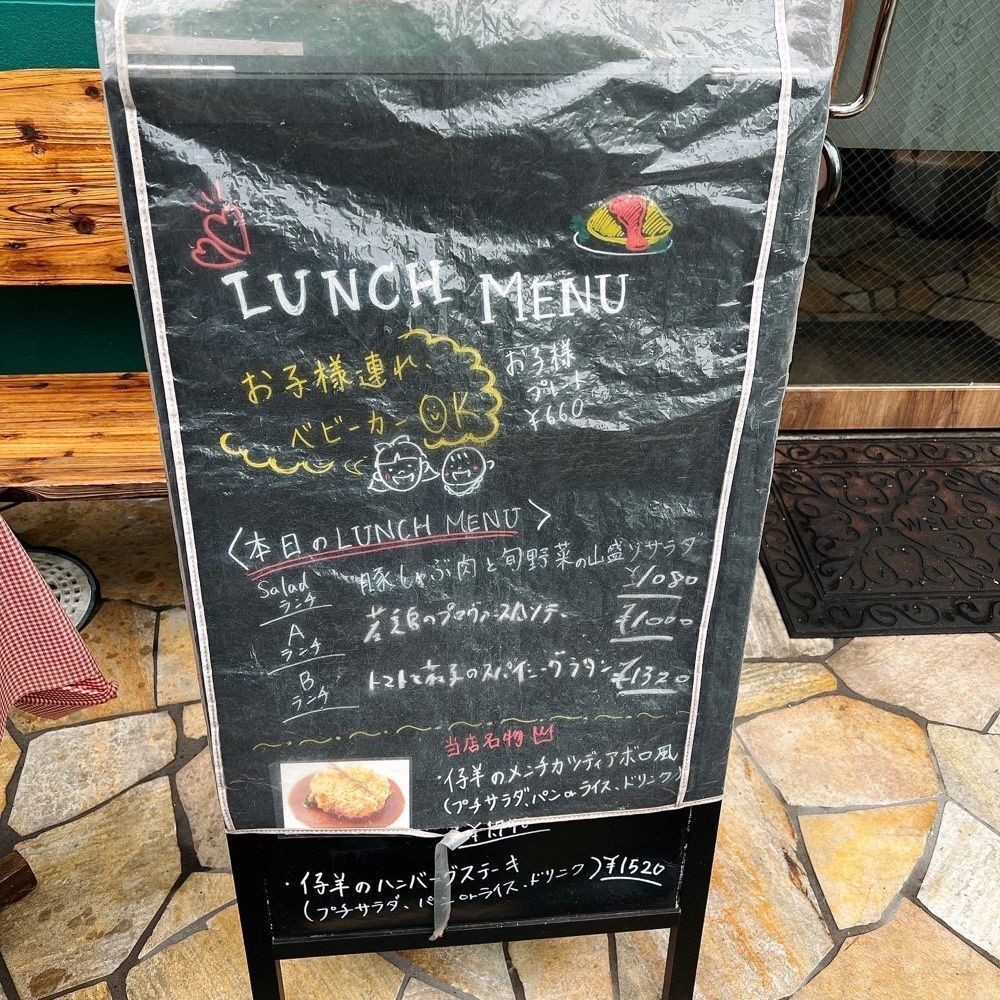 LUNCH MENU
お子様連れ、
ベビーカーOK
お子様
プレート
¥660
〈本日のLUNCH MENU〉
Salad
ランチ
豚しゃぶ肉と旬野菜の山盛りサラダ
¥1080
A
ランチ
若鶏のプロヴァンスソテー
¥1000
B
ランチ
トマトと茄子のスパイシーグラタン
¥1320
当店名物
・仔羊のメンチカツディアボロ風
(プチサラダ、パンorライス、ドリンク)
・仔羊のハンバーグステーキ
(プチサラダ、パンorライス、ドリンク) ¥1520
WELCOME